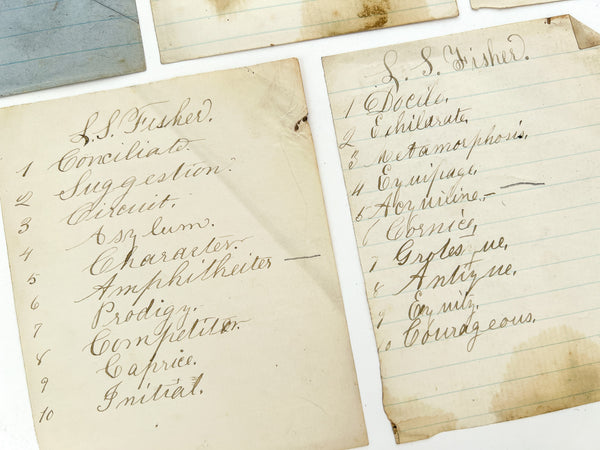 L. S. Fisher.
1 Conciliate.
2 Suggestion.
3 Circuit.
4 Asylum.
5 Character.
6 Amphitheiter —
7 Prodigy.
8 Competiter.
9 Caprice.
10 Initial.
L. S. Fisher.
1 Docile.
2 Exhilarate.
3 Metamorphosis.
4 Equipage.
5 Aquiline. —
6 Cornice,
7 Grotesque,
8 Antique,
9 Equity,
10 Courageous.